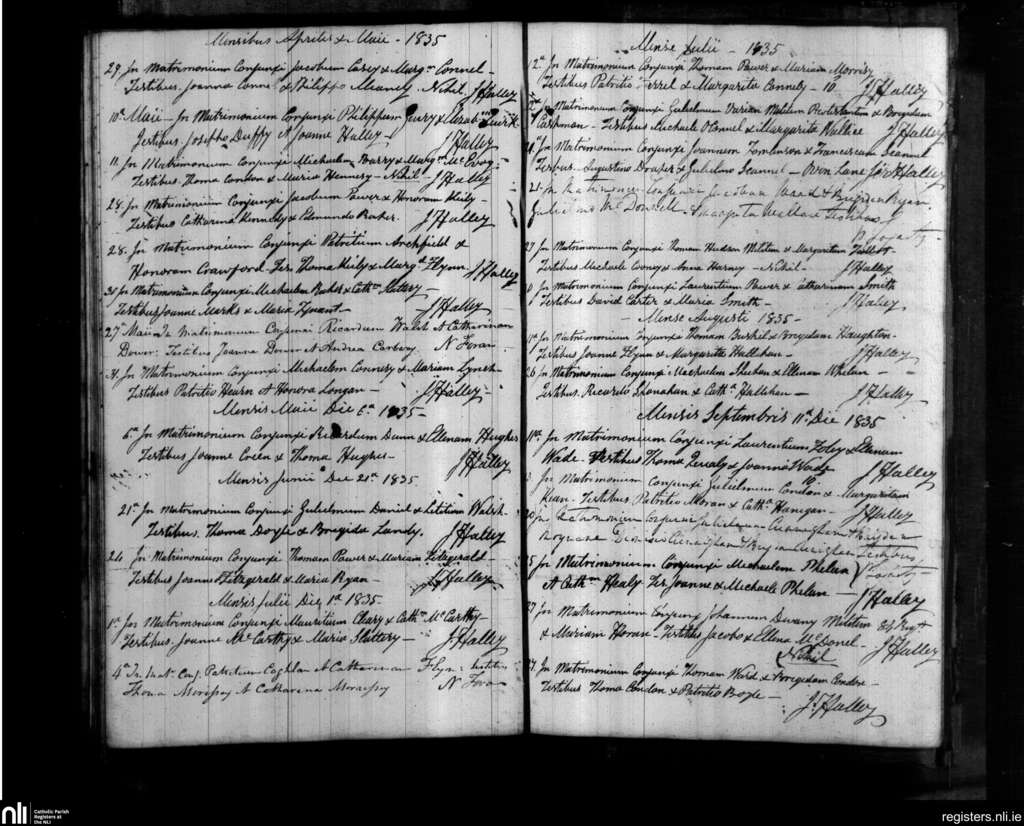 Mensibus Aprilis & Maii - 1835
29. In Matrimonium Conjunxi Jacobum Casey & Marg.m Connel -
Testibus Joanna & Philippo Meaney - Nihil. J Halley
10.a Maii - In Matrimonium Conjunxi Philippum &
Testibus Josepho Duffy & Joanne Halley - J Halley
11. In Matrimonium Conjunxi Michaelem Barry & Marg.m Mc Evoy.
Testibus Thoma Condon & Maria Hennesy - Nihil - J Halley
28. In Matrimonium Conjunxi Jacobum Power & Honoram Kiely -
Testibus Catharina Kennedy & Edmundo Baker. J Halley
28. In Matrimonium Conjunxi Patritium Archfield &
Honoram Crawford - Tes. Thoma Kiely & Marg.a Flynn - J Halley
31 In Matrimonium Conjunxi Michaelem Baker & Cath.m Slattery -
Testibus Joanne Marks & Maria - J Halley
27 Maii In Matrimonium Conjunxi Ricardum Walsh & Catharinam
Testibus Joanna & Andrea Corbery N Foran
31. In Matrimonium Conjunxi Michaelem Connery & Mariam Lynch -
Testibus Patritio Hearn & Honora Longan - J Halley -
Mensis Maii Die 6.a 1835 -
6.a In Matrimonium Conjunxi Ricardum Dunn & Ellenam Hughes
Testibus Joanne Green & Thoma Hughes - J Halley
Mensis Junii Die 21.a 1835
21.a In Matrimonium Conjunxi Gulielmum Daniel & Letitiam Walsh
Testibus Thoma Doyle & Brigida Lundy. J Halley
24 In Matrimonium Conjunxi Thomam Power & Mariam Fitzgerald -
Testibus Joanne Fitzgerald & Maria Ryan - J Halley
Mensis Julii Die 1.a 1835.
1.a In Matrimonium Conjunxi Mauritium Cleary & Cath.m Mc Carthy -
Testibus Joanne Mc Carthy & Maria Slattery - J Halley
4.a In Mat. Conj. Patritium Coghlan & Catharinam Flyn: testibus
Thoma Morissy & Catharina Morrissy N Foran
Mense Julii - 1835
12.a In Matrimonium Conjunxi Thomam Power & Mariam Morrisy
Testibus Patritio Ferrel & Margarita Connely - 10 - J Halley
In Matrimonium Conjunxi Gulielmum Varian Militem Protestantem & Brigidam
Cashman - Testibus Michaele O Connel & Margarita Wallice J Halley
In Matrimonium Conjunxi Joannem Tomlinson & Franciscam Scannel
Testibus Augustino Draper & Gulielmo Scannel - Lane J Halley
21. In Matrimonium Conjunxi Jacobum & Brigidam Ryan.
Gulielmo Mc Donnell & Margarita Wallace Testibus
P Fogarty
27 In Matrimonium Conjunxi Thomam Hudson Militem & Margaritam Talbot -
Testibus Michaele Cooney & Anna Harney - Nihil - J Halley
In Matrimonium Conjunxi Laurentium Power & Catharinam Smith
Testibus David Carter & Maria Smith - J Halley
- Mense Augusti 1835 -
11.a In Matrimonium Conjunxi Thomam & Brigidam Haughton
Testibus Joanne Flynn & Margarita Hallihan - J Halley
26 In Matrimonium Conjunxi Michaelem & Ellenam Whelan - -
Testibus Ricardo Shanahan & Cath.a Hallihan - J Halley
Mensis Septembris 11.a Die 1835
11.a In Matrimonium Conjunxi Laurentium Foley & Ellenam
Wade - Testibus Thoma & Joanna Wade J Halley
In Matrimonium Conjunxi Gulielmum Condon & Margaritam
Kean. Testibus Patritio Moran & Cath.a Hanigan - J Halley
20 In Matrimonium Conjunxi Gulielmum Cunningham & Brigidam
Testibus
P Fogarty
In Matrimonium Conjunxi Michaelem Phelan
& Cath.m Healy Tes Joanne & Michaele Phelan - J Halley
27 In Matrimonium Conjunxi Johannem Devany Militem Regt
& Mariam Horan - Testibus Jacobo & Ellena Mc Donel - J Halley
Nihil
27. In Matrimonium Conjunxi Thomam Ward & Brigidam Condon -
Testibus Thoma Condon & Patritio Boyle -
J Halley
nli
Catholic Parish
Registers at
the NLI
registers.nli.ie